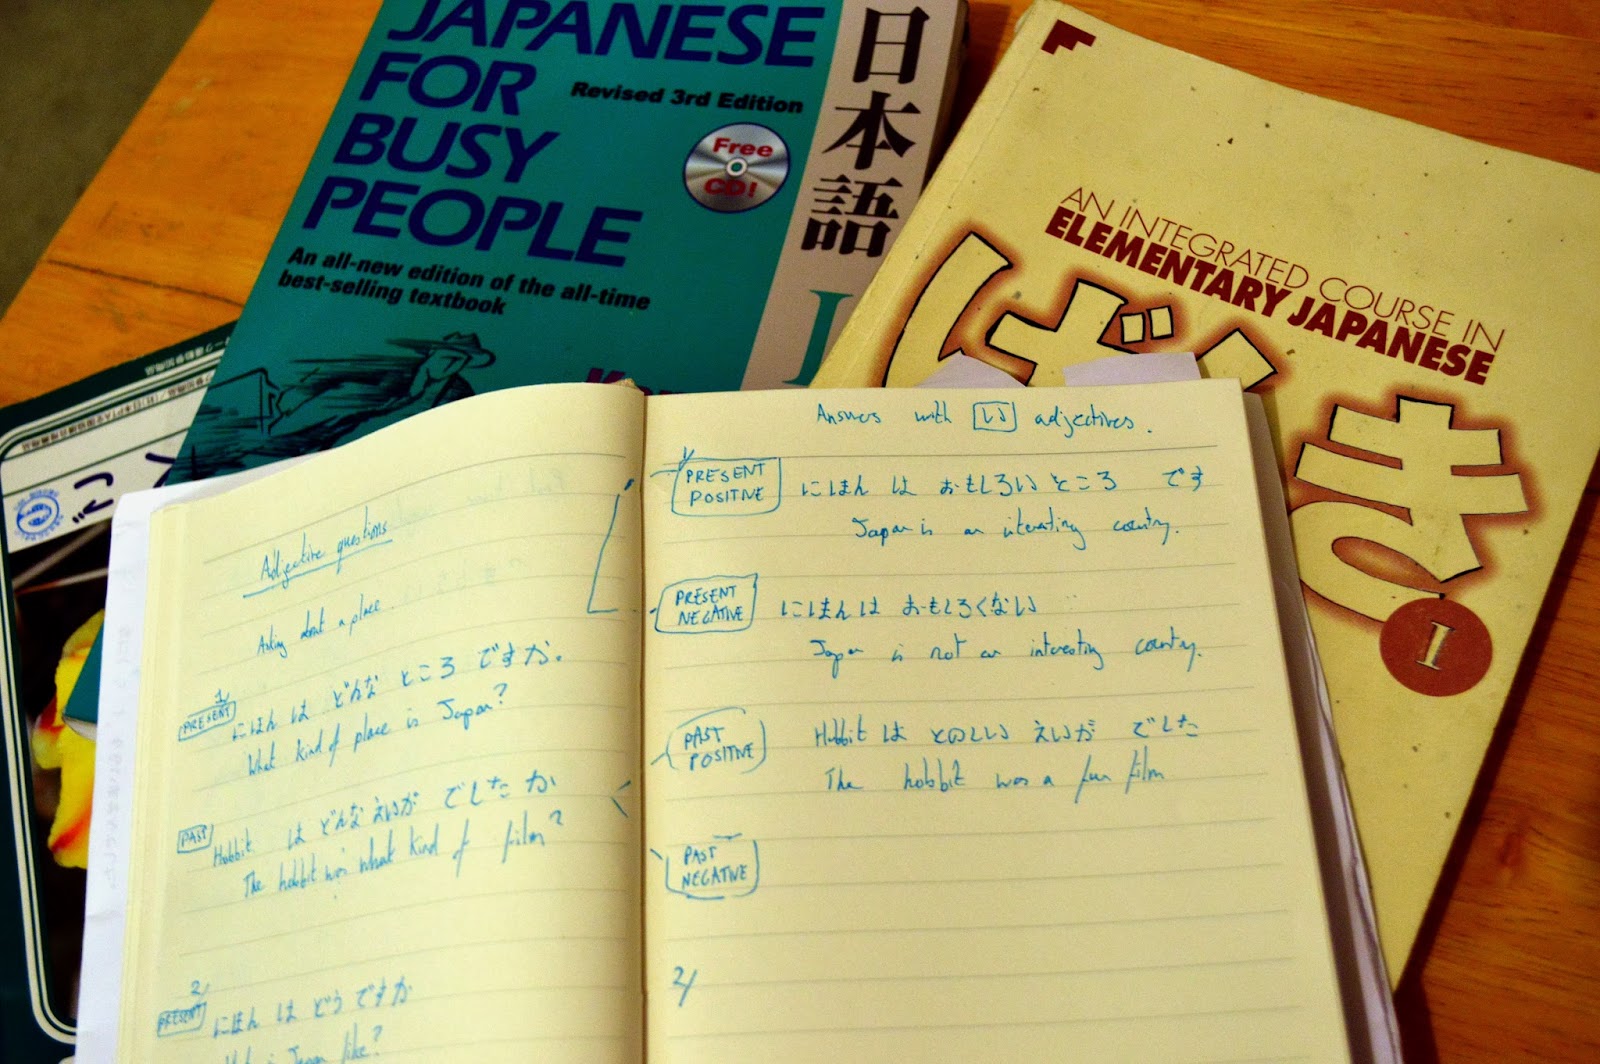 JAPANESE
FOR
BUSY
PEOPLE
Revised 3rd Edition
Free
CD!
An all-new edition of the all-time
best-selling textbook
日本語
I
AN INTEGRATED COURSE IN
ELEMENTARY JAPANESE
げ
き
I
Adjective questions
Asking about a place.
1/
PRESENT にほん は どんな ところ ですか.
What kind of place is Japan?
PAST Hobbit は どんな えいが でしたか
The hobbit was what kind of film?
2/
PRESENT にほん は どうですか
is Japan like?
Answers with い adjectives.
1/
PRESENT POSITIVE にほん は おもしろい ところ です
Japan is an interesting country.
PRESENT NEGATIVE にほんは おもしろくない
Japan is not an interesting country.
PAST POSITIVE Hobbit は とのしい えいが でした
The hobbit was a fun film
PAST
NEGATIVE
2/